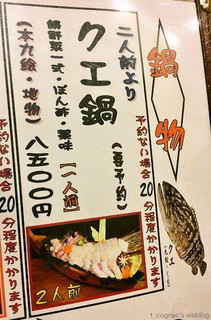 鍋物
二人前より
クエ鍋
(要予約)
鍋野菜一式・ぽん酢・薬味
【一人前】
八五〇〇円
(本九絵・地物)
予約ない場合20分程度かかります
予約ない場合20分程度かかります
クエ
2人前
t_cognac's weblog